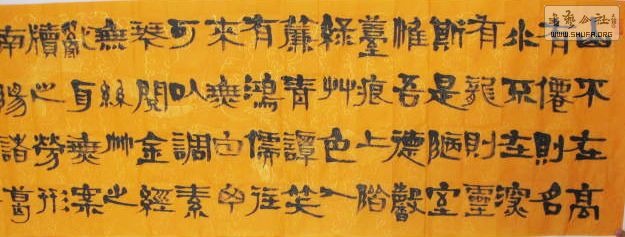 山不在高
有僊則名
水不在深
有龍則靈
斯是陋室
惟吾德馨
薹痕上階
綠艸色入
簾青譚笑
有鴻儒往
來無白丁
可以調素
琴閱金經
無絲竹之
亂耳無案
牘之勞形
南陽諸葛
书艺公社
WWW.SHUFA.ORG